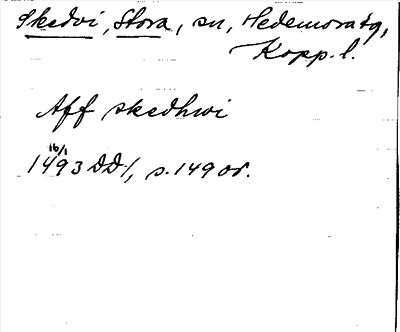 Skedvi, Stora, sn, Hedemora tg,
Kopp. l.
Aff skedhwi
16/1
1493 DD1, s. 149 or.